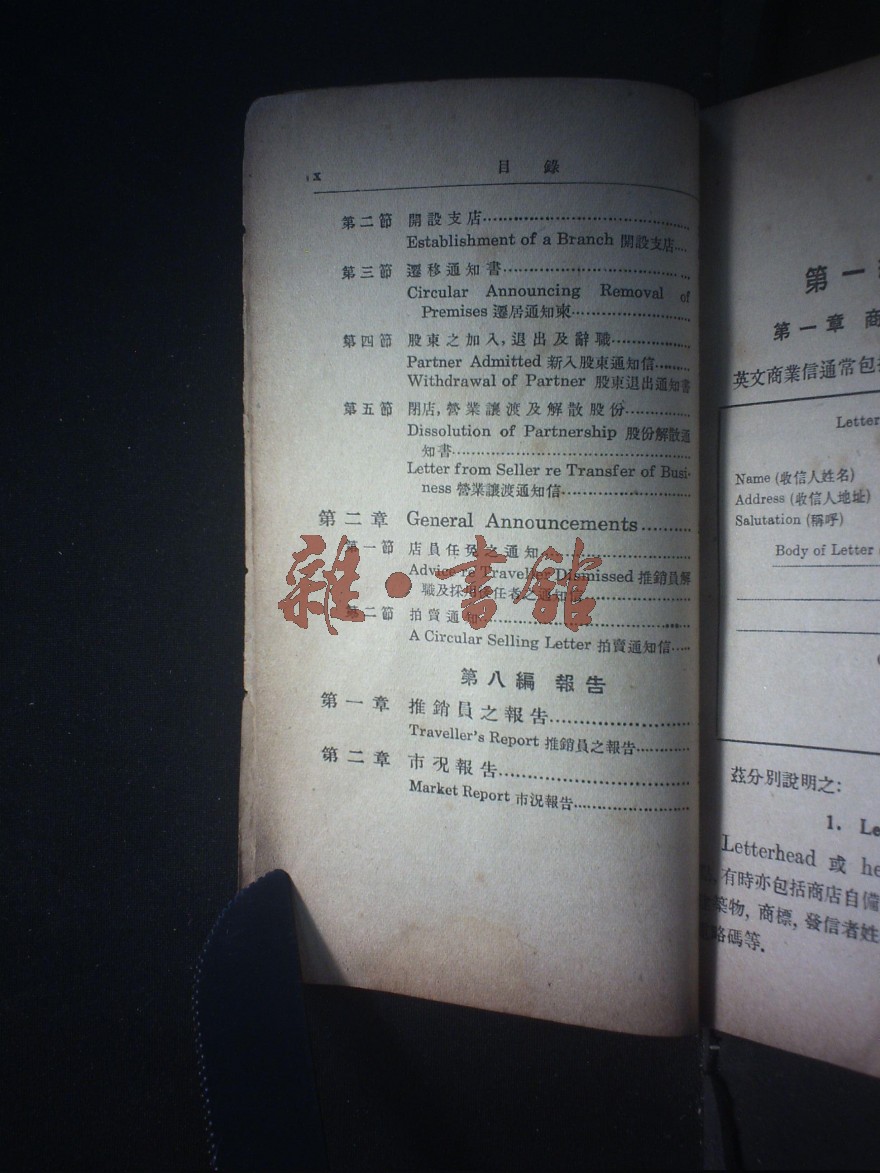 x 目錄
第二節 開設支店
Establishment of a Branch 開設支店
第三節 遷移通知書
Circular Announcing Removal of
Premises 遷居通知柬
第四節 股東之加入,退出及辭職
Partner Admitted 新入股東通知信
Withdrawal of Partner 股東退出通知書
第五節 閉店,營業讓渡及解散股份
Dissolution of Partnership 股份解散通
知書
Letter from Seller re Transfer of Busi-
ness 營業讓渡通知信
第二章 General Announcements
第一節 店員任免之通知
Advice re Traveller Dismissed 推銷員解
職及採用後任者之通知信
第二節 拍賣通知
A Circular Selling Letter 拍賣通知信
第八編 報告
第一章 推銷員之報告
Traveller's Report 推銷員之報告
第二章 市況報告
Market Report 市況報告
雜·書館
第一
第一章 商
英文商業信通常包括
Letter
Name (收信人姓名)
Address (收信人地址)
Salutation (稱呼)
Body of Letter
茲分別說明之:
1. Le
Letterhead 或 he
有時亦包括商店自備
築物, 商標, 發信者姓
略碼等.